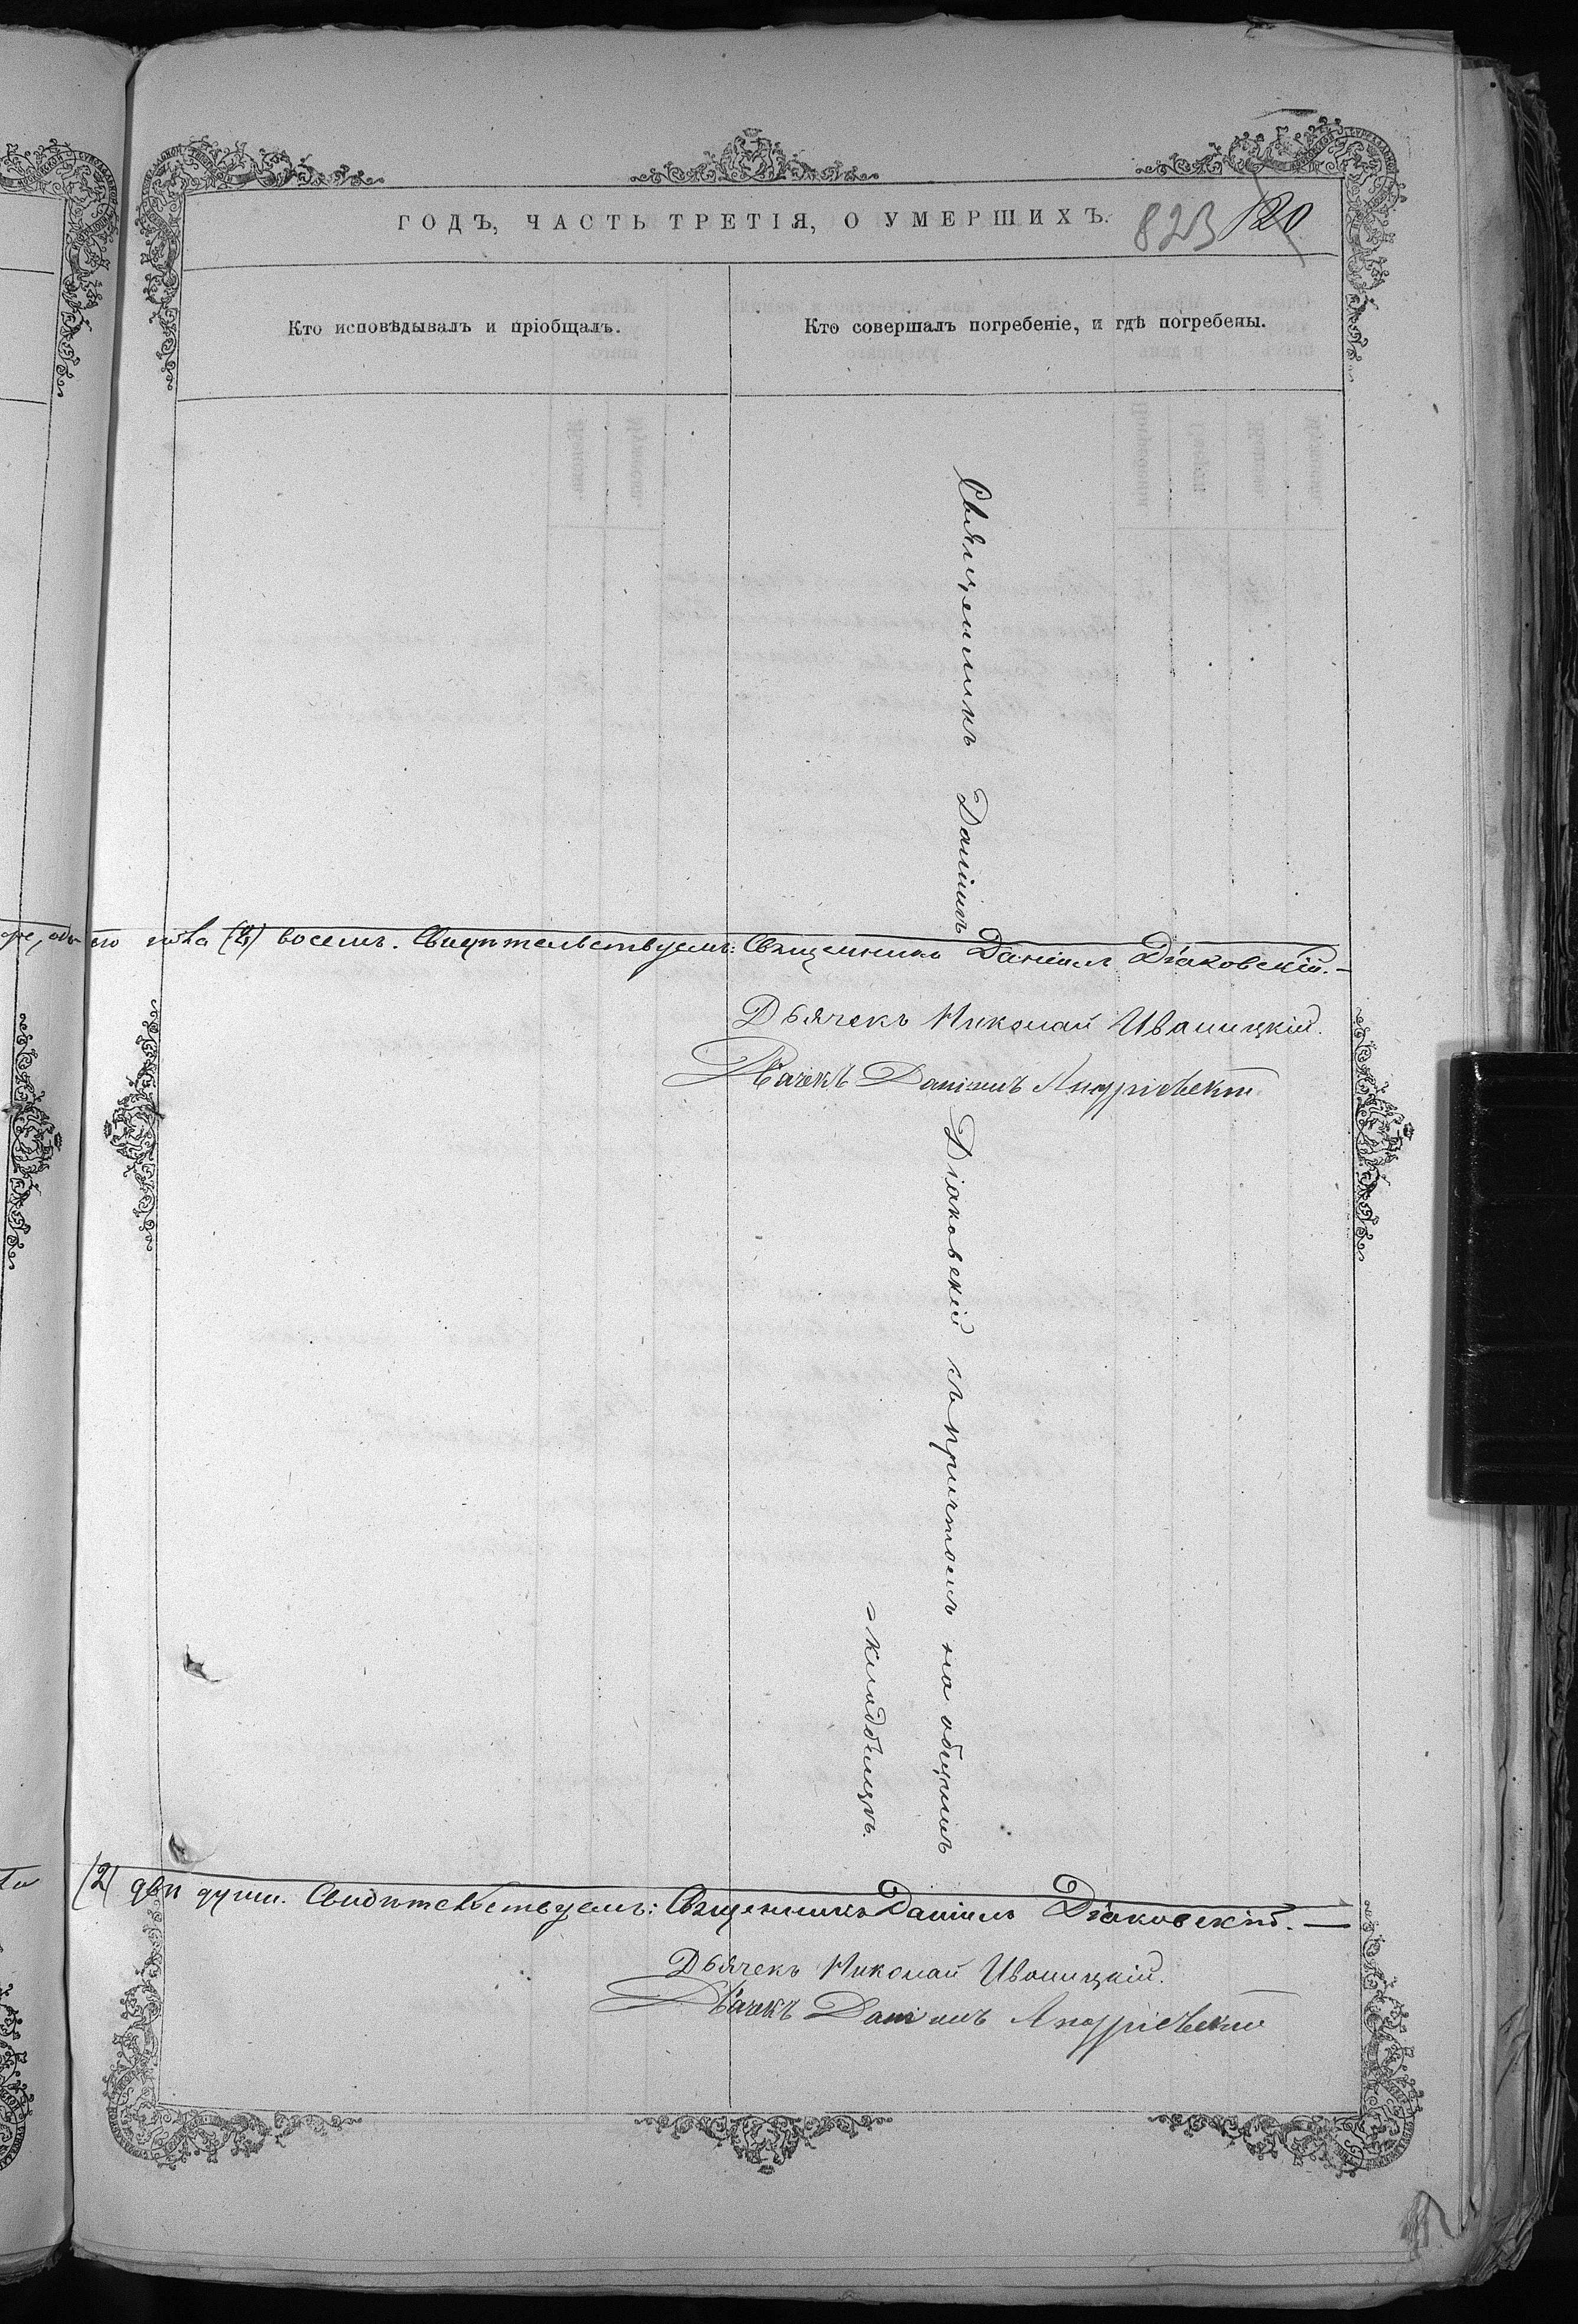 ГОДЪ, ЧАСТЬ ТРЕТІЯ, О УМЕРШИХЪ.
823 120
Кто исповѣдывалъ и пріобщалъ.
Кто совершалъ погребеніе, и гдѣ погребены.
Священникъ Даніилъ
(8) восемь. Свидѣтельствуемъ: Священникъ Даніилъ Діаковскій.
Дьячекъ Николай Иваницкій.
Дьячекъ Даніилъ Андріевскій
Діаковскій съ причтомъ на общемъ
кладбищѣ.
(2) двѣ души. Свидѣтельствуемъ: Священникъ Даніилъ Діаковскій.
Дьячекъ Николай Иваницкій.
Дьячекъ Даніилъ Андріевскій